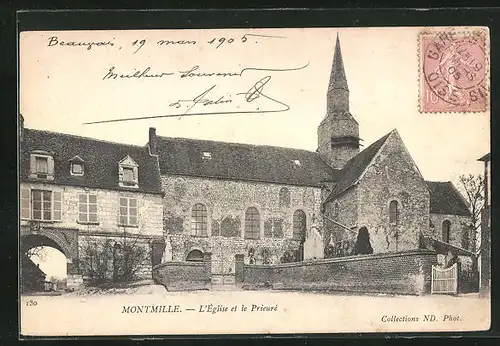 Beauvais, 19 mars 1905
Meilleur Souvenir
GARE
OISE
130
MONTMILLE. — L'Église et le Prieuré
Collections ND. Phot.